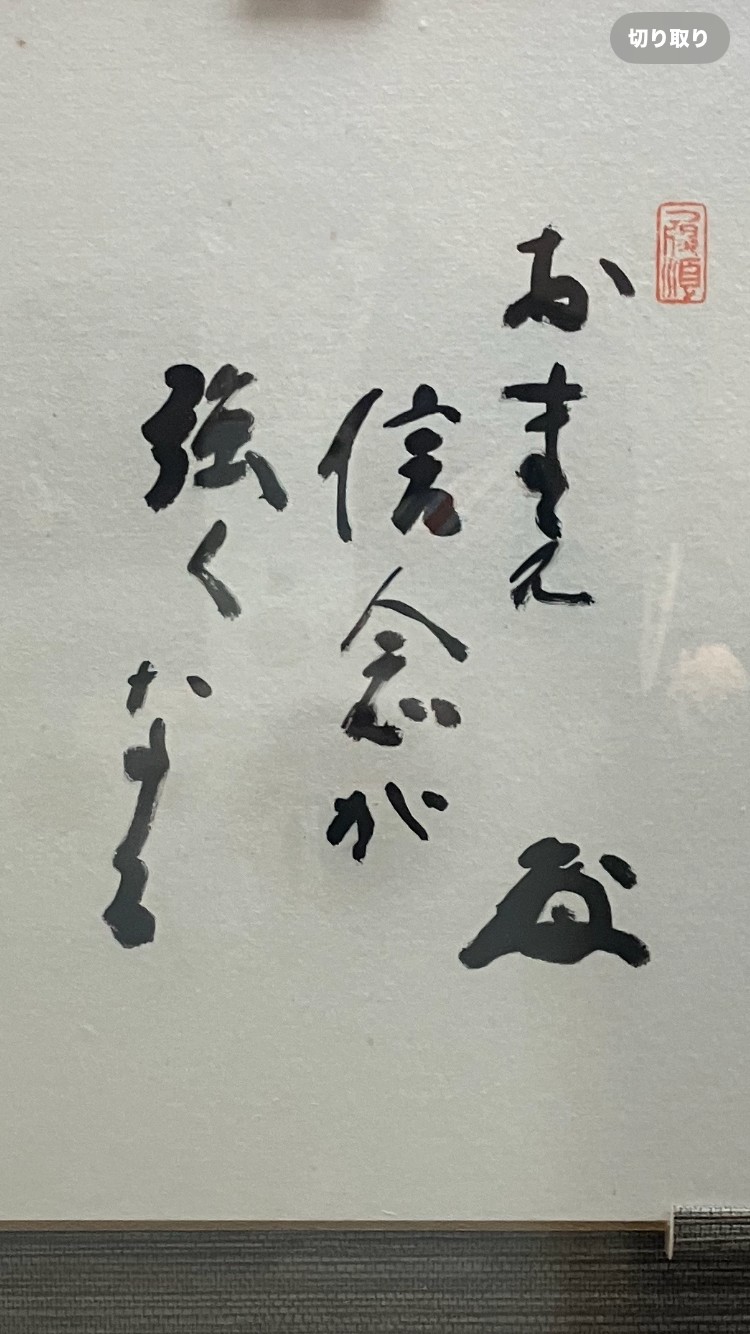 切り取り
おまえ
信念が
強くなる